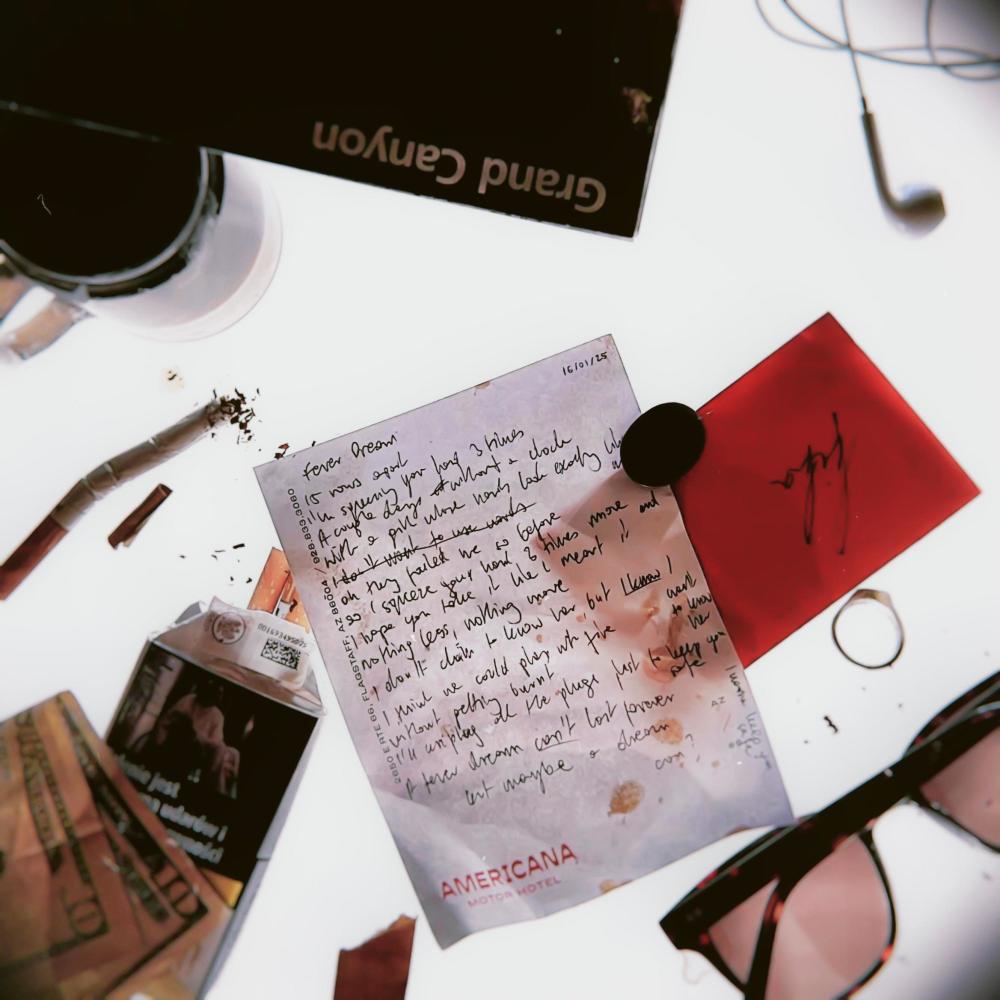 Grand Canyon
16/01/25
Fever Dream
15 rows apart
I'm squeezing your hand 3 times
A couple days without a clock
with a girl whose hands look exactly like
I don't want to use words
oh they failed me so before
so I squeeze your hand 3 times more and
I hope you take it like I meant it
nothing less, nothing more
I don't claim to know her but I know I want to know her
I think we could play with fire
without getting burnt
I'll unplug all the plugs just to keep you safe
A fever dream can't last forever
but maybe a dream can?
I wanna keep you safe
2650 E RTE 66, FLAGSTAFF, AZ 86004 / 928.833.3060
AZ
AMERICANA
MOTOR HOTEL
jest